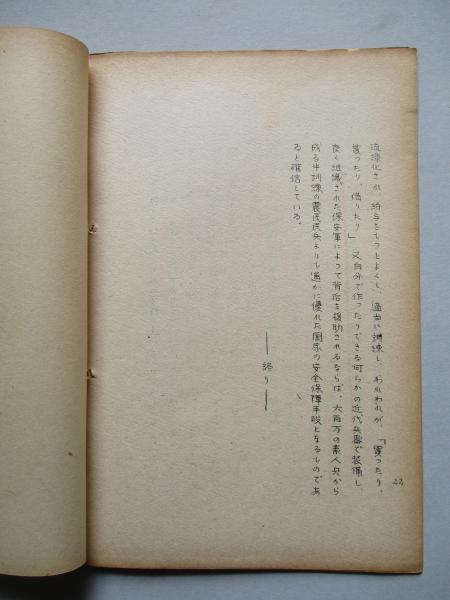 流線化され、給与をもつとよくし、適当に訓練し、われわれが、「買ったり、
貰ったり、借りたり」又自分で作ったりできる何らかの近代兵器で装備し、
良く組織された保安軍によって背后を援助されるならば、六百万の素人兵から
成る半訓練の農民民兵よりも遙かに優れた国家の安全保障手段となるものであ
ると確信している。
――終り――
23